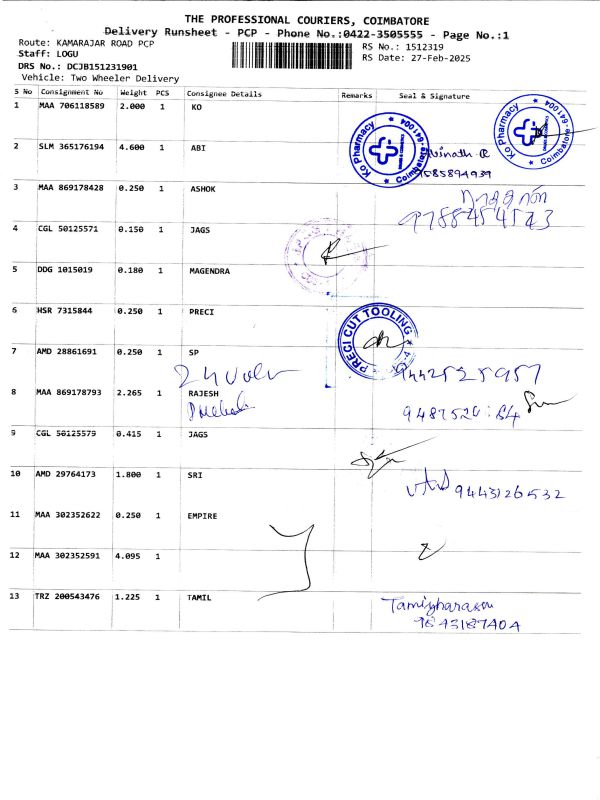 THE PROFESSIONAL COURIERS, COIMBATORE
Delivery Runsheet - PCP - Phone No.:0422-3505555 - Page No.:1
Route: KAMARAJAR ROAD PCP
RS No.: 1512319
Staff: LOGU
RS Date: 27-Feb-2025
DRS No.: DCJB151231901
Vehicle: Two Wheeler Delivery
S No Consignment No Weight PCS Consignee Details Remarks Seal & Signature
1 MAA 706118589 2.000 1 KO
Ko Pharmacy ★ Coimbatore-641004 ★
Ko Pharmacy ★ Coimbatore-641004 ★
2 SLM 365176194 4.600 1 ABI
3 MAA 869178428 0.250 1 ASHOK
4 CGL 50125571 0.150 1 JAGS
5 DDG 1015019 0.180 1 MAGENDRA
6 HSR 7315844 0.250 1 PRECI
PRECI CUT TOOLING
7 AMD 28861691 0.250 1 SP
9442525957
8 MAA 869178793 2.265 1 RAJESH
9 CGL 50125579 0.415 1 JAGS
10 AMD 29764173 1.800 1 SRI
9443126532
11 MAA 302352622 0.250 1 EMPIRE
12 MAA 302352591 4.095 1
13 TRZ 200543476 1.225 1 TAMIL
Tamizharasu
9843187404